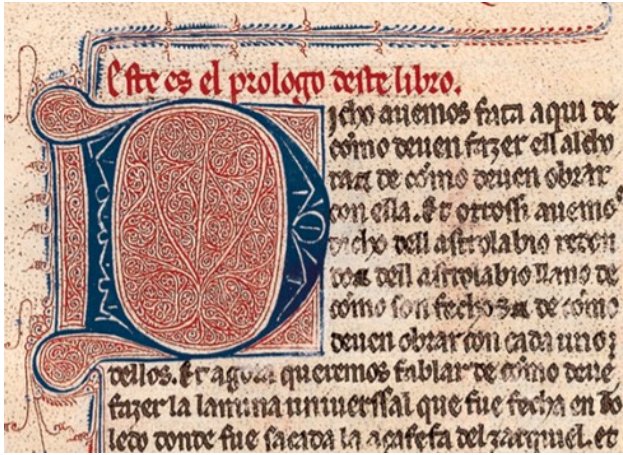 Este es el prologo deste libro.
Dicho auemos fata aqui de
cómo deuen fazer ell alcho
rat de cómo deuen obrar
con ella. Et otrossi auemos
dicho dell astrolabio redon
do ⁊ dell astrolabio llano de
cómo son fechos ⁊ de cómo
deuen obrar con cada uno
dellos. Et agora queremos fablar de cómo deue
fazer la lamina uniuerssal que fue fecha en To
ledo donde fue sacada la açafefa del zarquiel. et